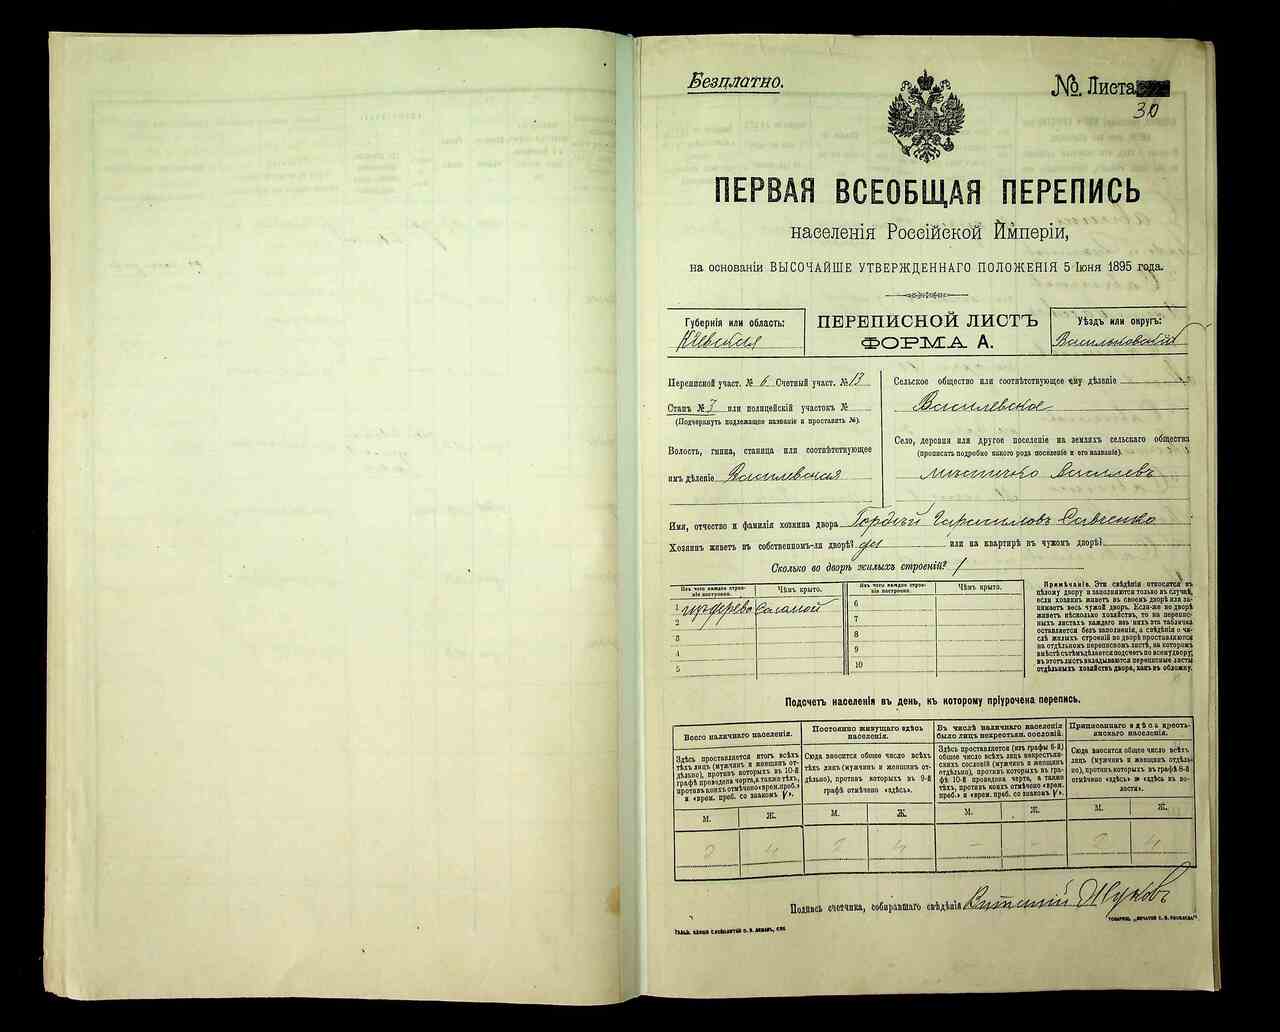 Безплатно.
№ Листа
30
ПЕРВАЯ ВСЕОБЩАЯ ПЕРЕПИСЬ
населенія Россійской Имперіи,
на основаніи ВЫСОЧАЙШЕ УТВЕРЖДЕННАГО ПОЛОЖЕНІЯ 5 Іюня 1895 года.
Губернія или область:
Кіевская
ПЕРЕПИСНОЙ ЛИСТЪ
ФОРМА А.
Уѣздъ или округъ:
Васильковскій
Переписной участ. № 6 Счетный участ. № 13
Станъ № 3 или полицейскій участокъ №
(Подчеркнуть подлежащее названіе и проставить №).
Волость, гмина, станица или соотвѣтствующее
имъ дѣленіе Василевская
Сельское общество или соотвѣтствующее ему дѣленіе
Василевское
Село, деревня или другое поселеніе на земляхъ сельскаго общества
(прописать подробно какого рода поселеніе и его названіе).
мѣстечко Василевъ
Имя, отчество и фамилія хозяина двора Гордѣй Савенко
Хозяинъ живетъ въ собственномъ-ли дворѣ? да или на квартирѣ въ чужомъ дворѣ?
Сколько во дворѣ жилыхъ строеній? 1
Изъ чего каждое строеніе построено.
Чѣмъ крыто.
Изъ чего каждое строеніе построено.
Чѣмъ крыто.
1 изъ дерева Соломой
2
3
4
5
6
7
8
9
10
Примѣчаніе. Эти свѣдѣнія относятся къ
цѣлому двору и заполняются только въ случаѣ,
если хозяинъ живетъ въ своемъ дворѣ или занимаетъ
весь чужой дворъ. Если-же во дворѣ
живетъ нѣсколько хозяйствъ, то на переписныхъ
листахъ каждаго изъ нихъ эта табличка
оставляется безъ заполненія, а свѣдѣнія о числѣ
жилыхъ строеній во дворѣ проставляются
на отдѣльномъ переписномъ листѣ, на которомъ
вмѣстѣ съ тѣмъ дѣлается подсчетъ по всему двору;
въ этотъ листъ вкладываются переписные листы
отдѣльныхъ хозяйствъ двора, какъ въ обложку.
Подсчетъ населенія въ день, къ которому пріурочена перепись.
Всего наличнаго населенія.
Постоянно живущаго здѣсь
населенія.
Въ числѣ наличнаго населенія
было лицъ некрестьян. сословій:
Приписаннаго здѣсь крестьянскаго
населенія.
Здѣсь проставляется итогъ всѣхъ
тѣхъ лицъ (мужчинъ и женщинъ отдѣльно),
противъ которыхъ въ 10-й
графѣ проведена черта, а также тѣхъ,
противъ коихъ отмѣчено «врем. преб.»
и «врем. преб. со знакомъ V».
Сюда вносится общее число всѣхъ
тѣхъ лицъ (мужчинъ и женщинъ отдѣльно),
противъ которыхъ въ 9-й
графѣ отмѣчено «здѣсь».
Здѣсь проставляется (изъ графы 6-й)
общее число всѣхъ лицъ некрестьянскихъ
сословій (мужчинъ и женщинъ
отдѣльно), противъ которыхъ въ графѣ
10-й проведена черта, а также
тѣхъ, противъ коихъ отмѣчено «врем.
преб.» и «врем. преб. со знакомъ V».
Сюда вносится общее число всѣхъ
лицъ (мужчинъ и женщинъ отдѣльно),
противъ которыхъ въ графѣ 8-й
отмѣчено «здѣсь» и «здѣсь въ волости».
М. Ж. М. Ж. М. Ж. М. Ж.
2 4 2 4 - - 2 4
Подпись счетчика, собиравшаго свѣдѣнія Виталій Жуковъ